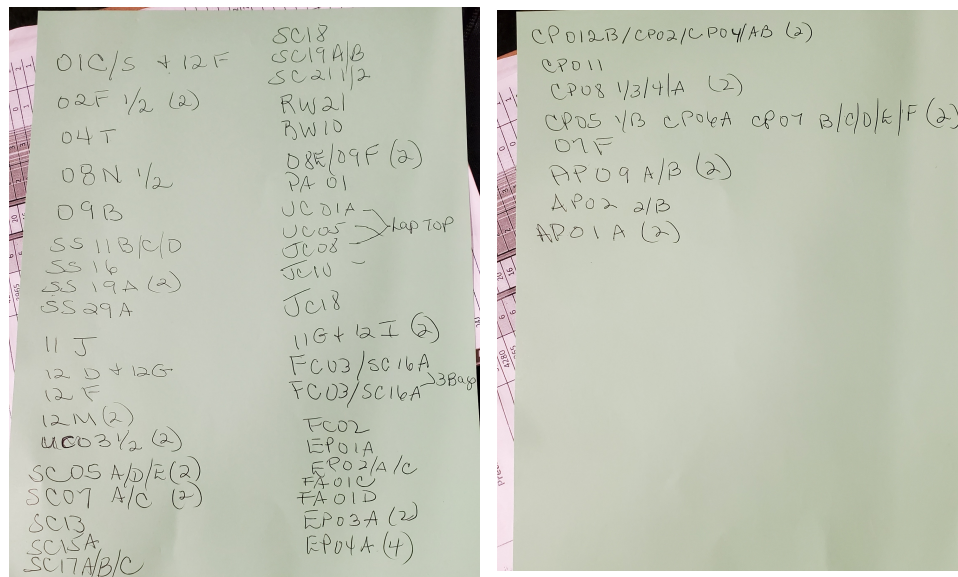 01C/S + 12F
02F 1/2 (2)
04T
08N 1/2
09B
SS 11B/C/D
SS 16
SS 19A (2)
SS 29A
11 J
12 D + 12G
12 F
12M (2)
UC03 1/2 (2)
SC05 A/D/E (2)
SC07 A/C (2)
SC13
SC15A
SC17A/B/C
SC18
SC19A/B
SC211/2
RW21
RW10
08E/09F (2)
PA 01
UC01A
UC05 Lap TOP
JC08
JC10
JC18
11G + 12 I (2)
FC03/SC16A
FC03/SC16A 3Bags
FC02
EP01A
EP02/A/C
FA01C
FA01D
EP03A (2)
EP04A (4)
CP012B/CP02/CP04/AB (2)
CP011
CP08 1/3/4/A (2)
CP05 1/B CP06A CP07 B/C/D/E/F (2)
07F
AP09 A/B (2)
AP02 2/B
AP01A (2)